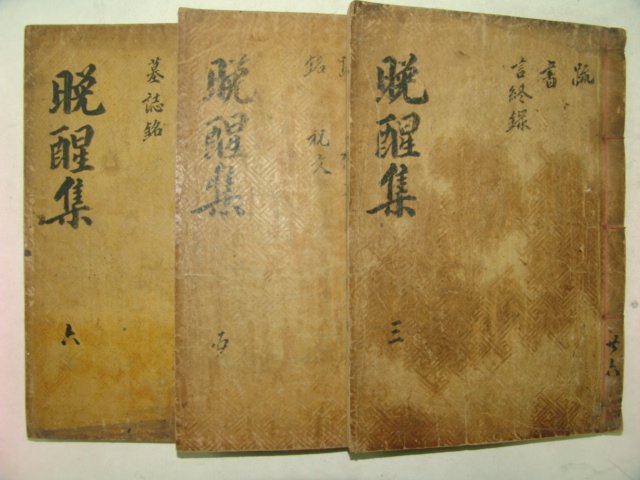 疏
書
言終錄
晩醒集
三
共六
銘
祝文
晩醒集
五
墓誌銘
晩醒集
六